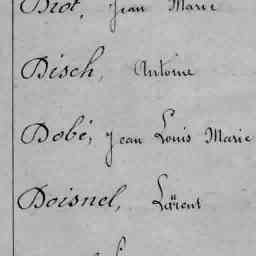 Diot, Jean Marie
Disch, Antoine
Dobé, Jean Louis Marie
Doisnel, Laurent